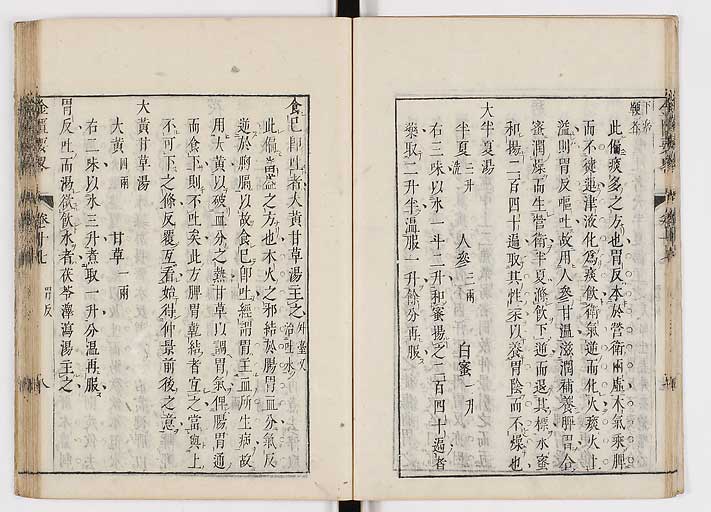 此偏痰多之方也胃反本於營衛兩虛木氣乘脾
而不徒運津液化為痰飲衛氣逆而化火痰火上
溢則胃反嘔吐故用人參甘溫滋潤補養脾胃合
蜜潤燥而生營衛半夏滌飲下逆而退其標水蜜
和揚二百四十遍取其性柔以養胃陰而不燥也
大半夏湯
半夏 二升 洗 人參 三兩 白蜜 一升
右三味以水一斗二升和蜜揚之二百四十遍煮
藥取二升半溫服一升餘分再服
食已即吐者大黃甘草湯主之 外臺又治吐水
此偏當益之方也木火之邪結於腸胃血分氣反
逆於胸膈以故食已即吐經謂胃主血所生病故
用大黃以破血分之熱甘草以調胃氣俾腸胃通
而食下則不吐矣此方脾胃乾結者宜之當與上
不可下之條反覆互看始得仲景前後之意
大黃甘草湯
大黃 四兩 甘草 一兩
右二味以水三升煮取一升分溫再服
胃反吐而渴欲飲水者茯苓澤瀉湯主之
卷十七 胃反 八